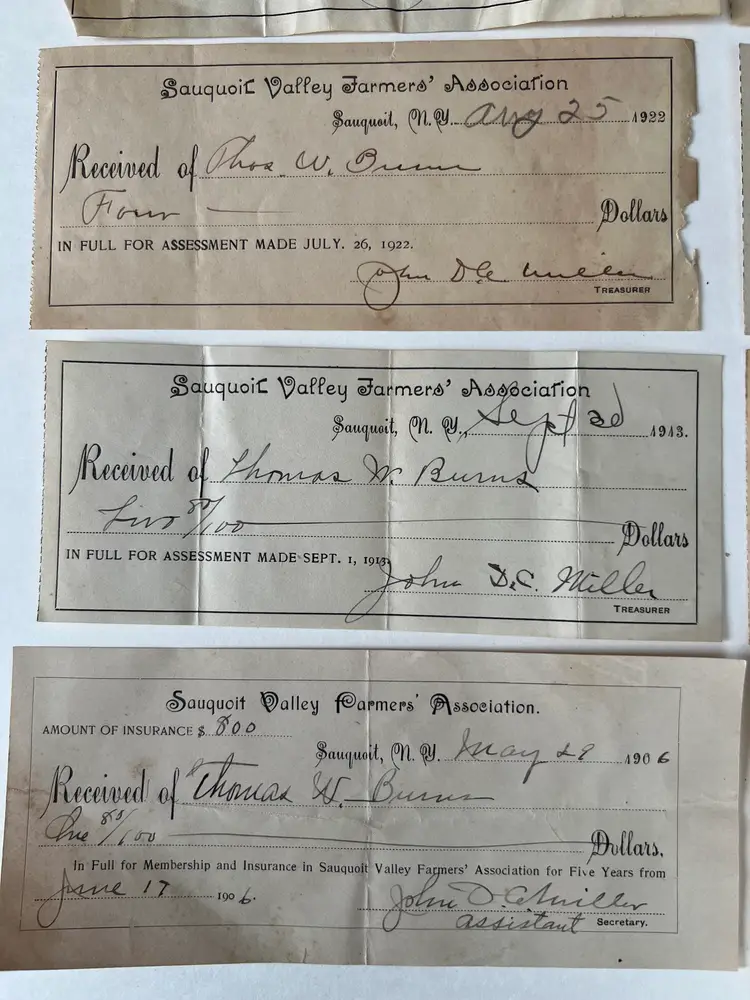 Sauquoit Valley Farmers' Association
Sauquoit, N.Y. Aug 25 1922
Received of Thos. W. Burns
Four Dollars
IN FULL FOR ASSESSMENT MADE JULY. 26, 1922.
John D.C. Miller
TREASURER
Sauquoit Valley Farmers' Association
Sauquoit, N.Y., Sept 3d 1913.
Received of Thomas W. Burns
Two 80/100 Dollars
IN FULL FOR ASSESSMENT MADE SEPT. 1, 1913.
John D.C. Miller
TREASURER
Sauquoit Valley Farmers' Association.
AMOUNT OF INSURANCE $ 800
Sauquoit, N.Y. May 29 1906
Received of Thomas W. Burns
One 85/100 Dollars.
In Full for Membership and Insurance in Sauquoit Valley Farmers' Association for Five Years from
June 17 1906.
John D.C. Miller
assistant Secretary.